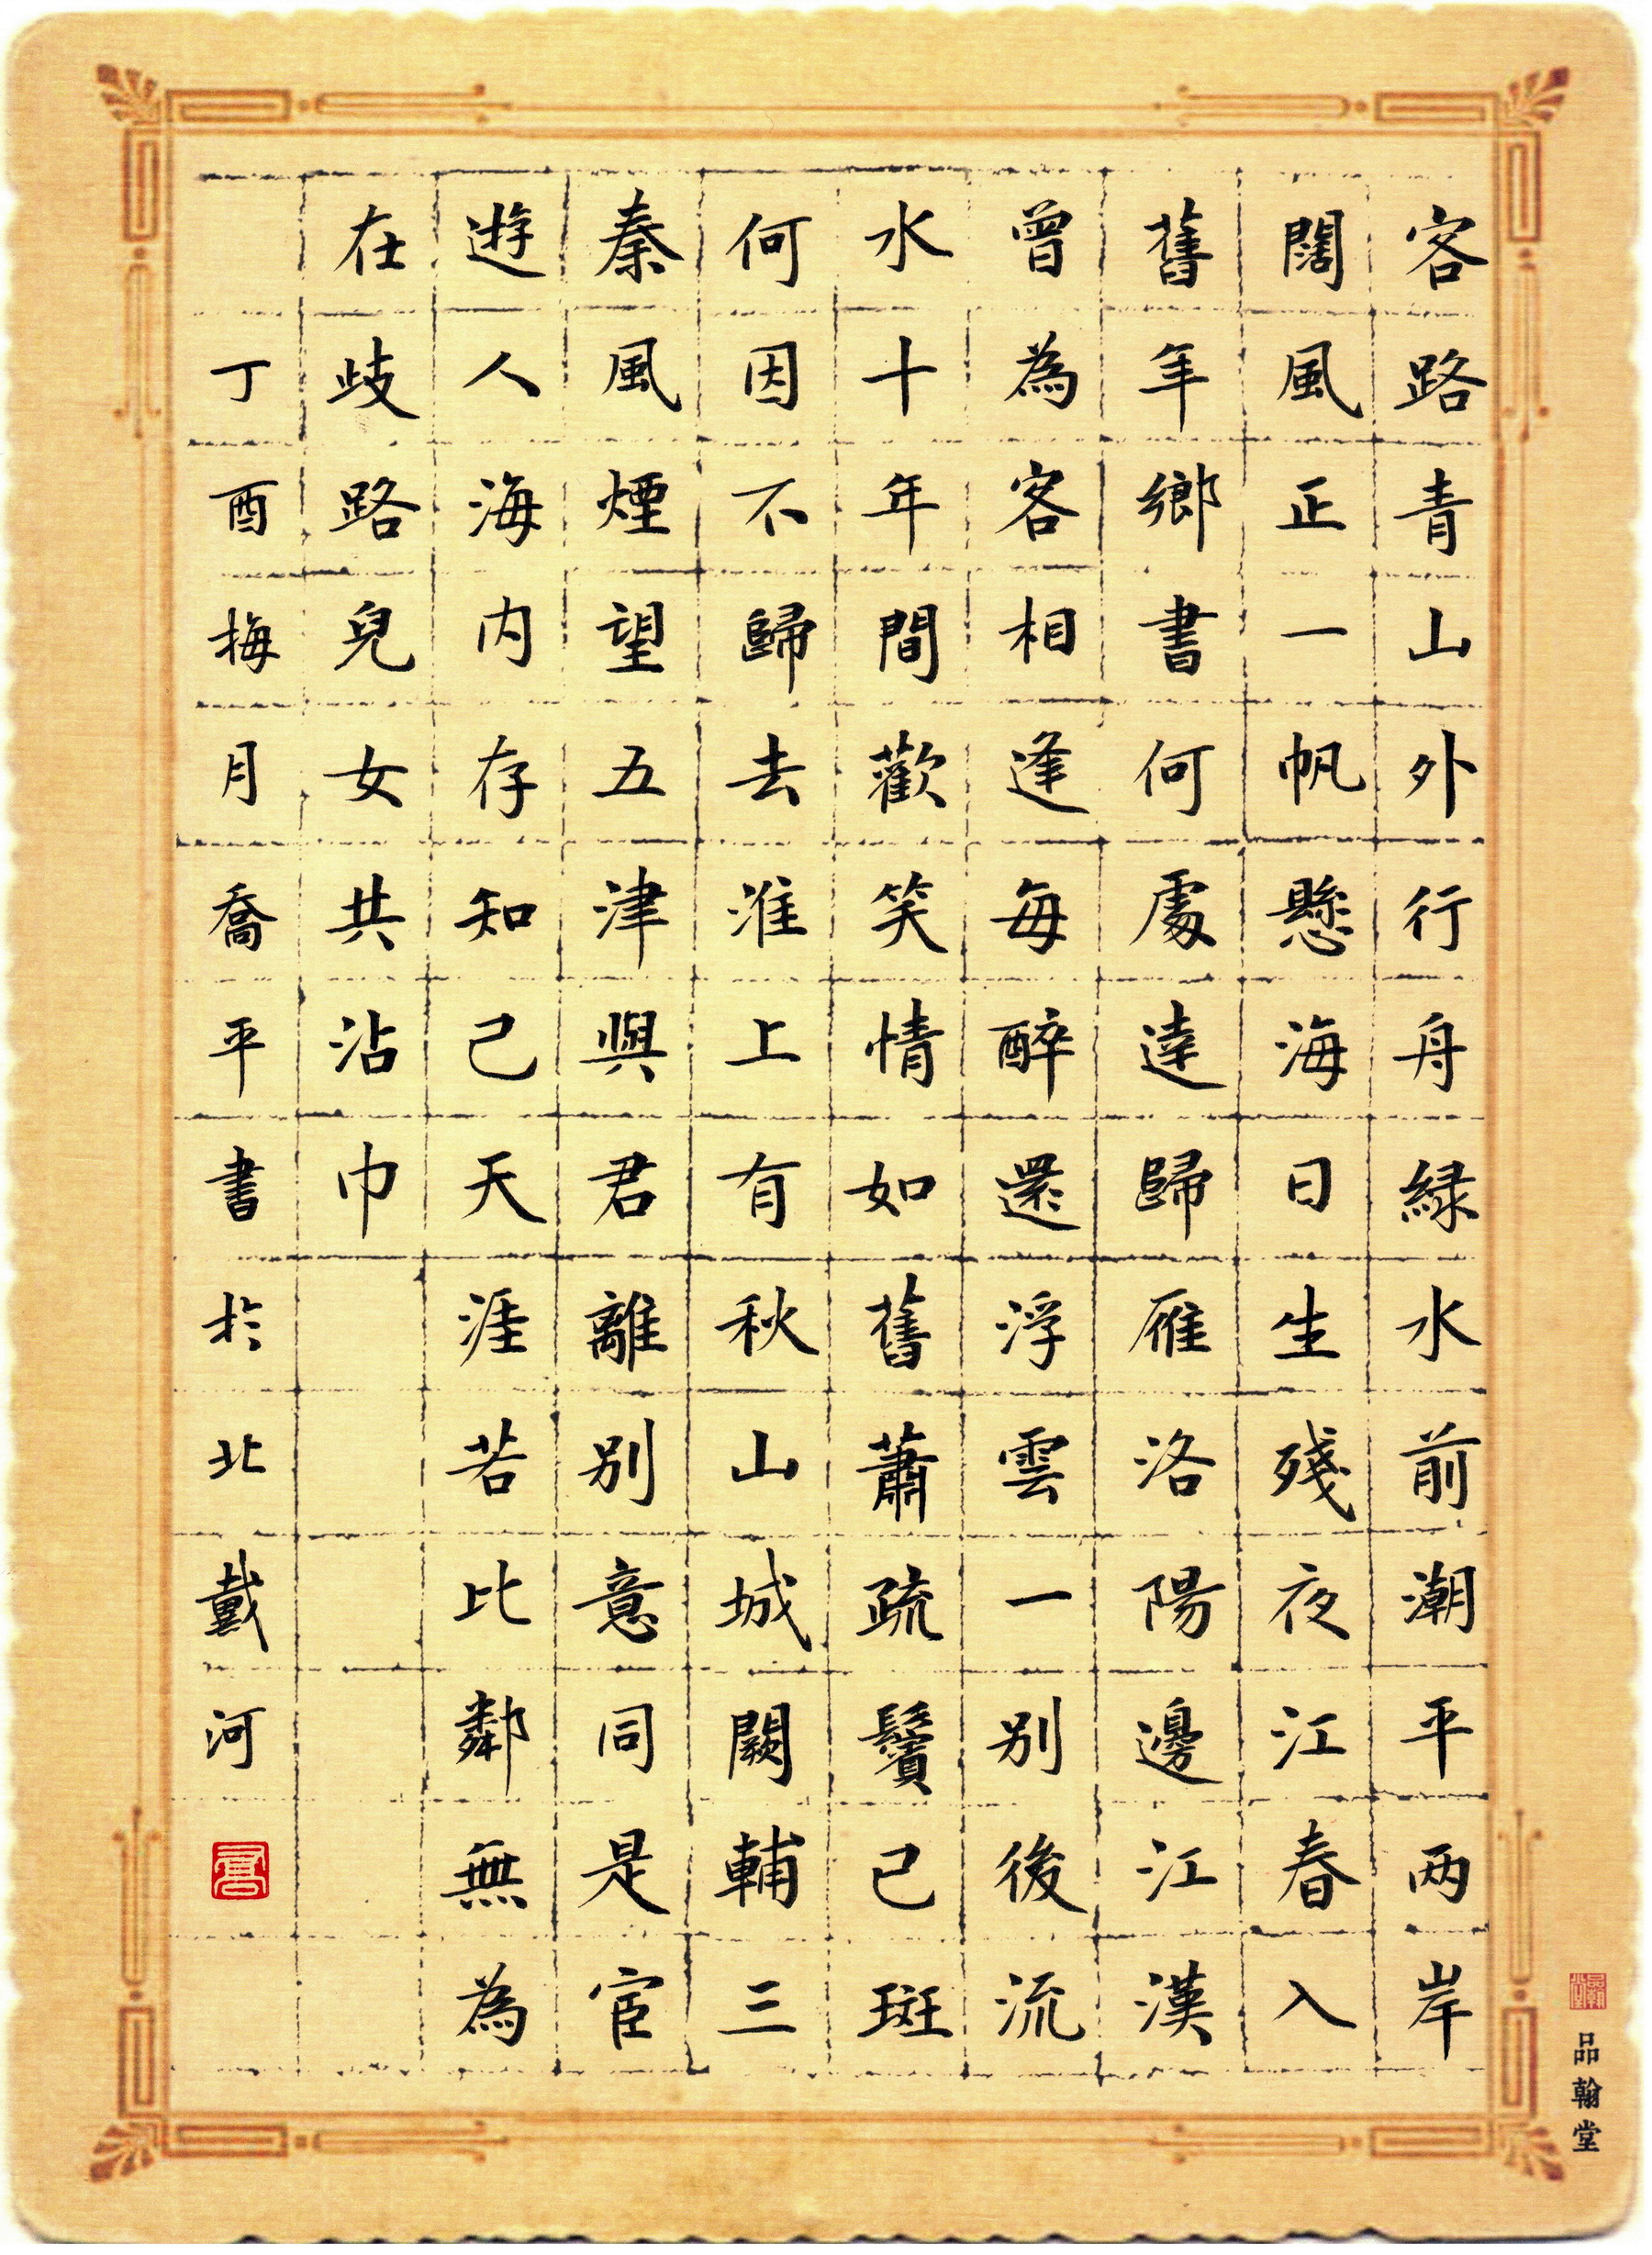 客路青山外行舟緑水前潮平两岸
闊風正一帆懸海日生殘夜江春入
舊年鄉書何處達歸雁洛陽邊江漢
曾為客相逢每醉還浮雲一別後流
水十年間歡笑情如舊蕭疏鬢已斑
何因不歸去淮上有秋山城闕輔三
秦風煙望五津與君離別意同是宦
遊人海内存知己天涯若比鄰無為
在歧路兒女共沾巾
丁酉梅月喬平書於北戴河
喬
品翰堂
品翰堂